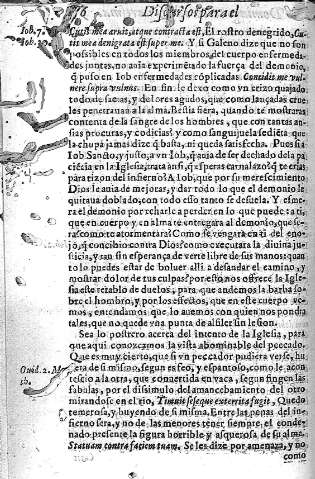 76 Discursos para el
Iob. 7. Cutis mea aruit, atque contracta est, El rostro denegrido, Cu-
Iob. 30. tis mea denigrata est super me. Y si Galeno dize que no son
possibles en todos los miembros, del cuerpo enfermeda-
des juntas, no auia experimẽtado la fuerça del demonio,
q̃ puso en Iob enfermedades cõplicadas Concidit me vul-
nere supra vulnus. En fin le dexo como vn erizo quajado
todo de saetas, y dolores agudos, que como lançadas crue-
les penetrauan a la alma. Bestia fiera, quando te mostraras
contenta de la sangre de los hombres, que con tantas an-
sias procuras, y codicias? y como sanguijuela sediẽta que
la chupa jamas dize q̃ basta, ni queda satisfecha. Pues si a
Iob Santo, y justo, a vn Iob, q̃ auia de ser dechado de la pa-
ciẽcia en la Iglesia, trata ansi, q̃ esperas carnalazo? q̃ te crias
para tizon del infierno? A Iob, que por su merescimiento
Dios le auia de mejorar, y dar todo lo que el demonio le
quitaua doblado, con todo esso tanto se desuela. Y esme-
ra el demonio por echarle a perder en lo que puede: a ti,
que en cuerpo y en alma te entregara al demonio, que se-
ra? como te atormentara? Como se vengara en ti del eno-
jo, q̃ concibio contra Dios? como executara la diuina ju-
sticia, y tan sin esperança de verte libre de sus manos? quan
to lo puedes estar de boluer alli a desandar el camino, y
mostrar dolor de tus culpas? por esto nos offresce la Igle-
sia este retablo de duelos, para que andemos la barba so-
bre el hombro, y por los effectos, que en este cuerpo ve-
mos, entendamos que lo auemos con quien nos pondra
tales, que no quede vna punta de alfiler sin lesion.
Sea lo postrero acerca del intento de la Iglesia, para
que aqui conozcamos la vista abominable del peccado.
Que es muy cierto, que si vn peccador pudiera verse, hu-
Ouid. 2. M yera de si mismo, segun es feo, y espantoso, como le acon-
tescio a la otra, que conuertida en vaca, segun fingen las
fabulas, por el dissimulo del amancebamiento del otro
mirandose en el rio, Timuit seseque exterrita fugit, Quedo
temerosa, y huyendo de si misma. Entre las penas del in-
fierno sera, y no de las menores tener siempre el conde-
nado presente la figura horrible, y asquerosa de su alma.
Statuam contra faciem tuam. Se les dize por amenaza, y no
como